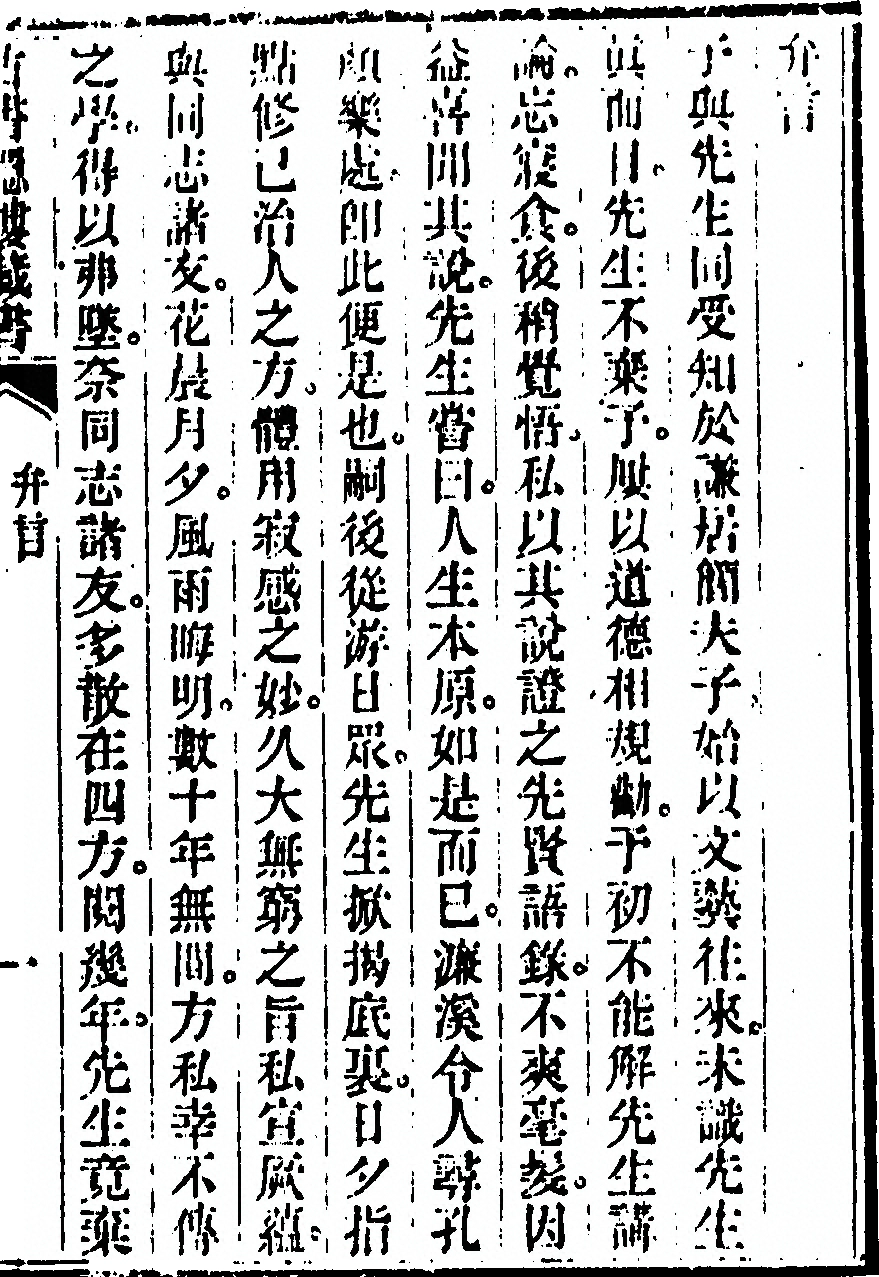 弁言
予與先生同受知於謙居顏夫子。始以文藝往來。未識先生
眞面目。先生不棄予。屢以道德相規勸。予初不能解先生講
論。忘寢食。後稍覺悟。私以其說證之先賢語錄。不爽毫髮。因
益喜聞其說。先生嘗曰。人生本原。如是而已。濂溪令人尋孔
顏樂處。卽此便是也。嗣後從游日眾。先生掀揭底裏。日夕指
點修已治人之方。體用寂感之妙。久大無窮之旨。私宣厥蘊。
與同志諸友。花晨月夕。風雨晦明。數十年無間。方私幸不傳
之學。得以弗墜。奈同志諸友。多散在四方。閱幾年。先生竟棄
弁言
一